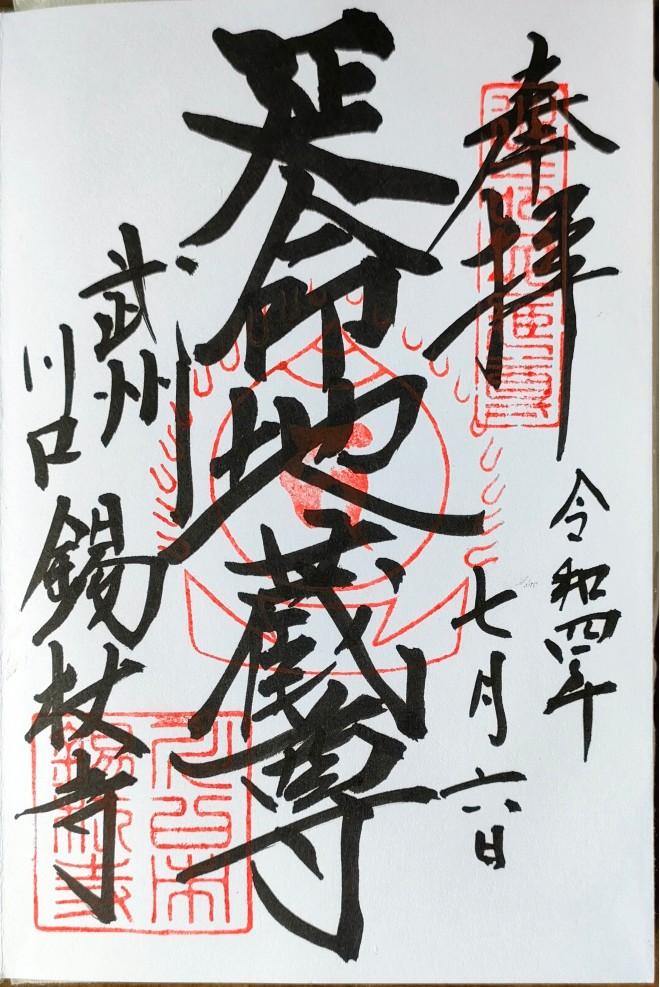 奉拝
令和四年
七月六日
延命地蔵尊
武州
川口
錫杖寺